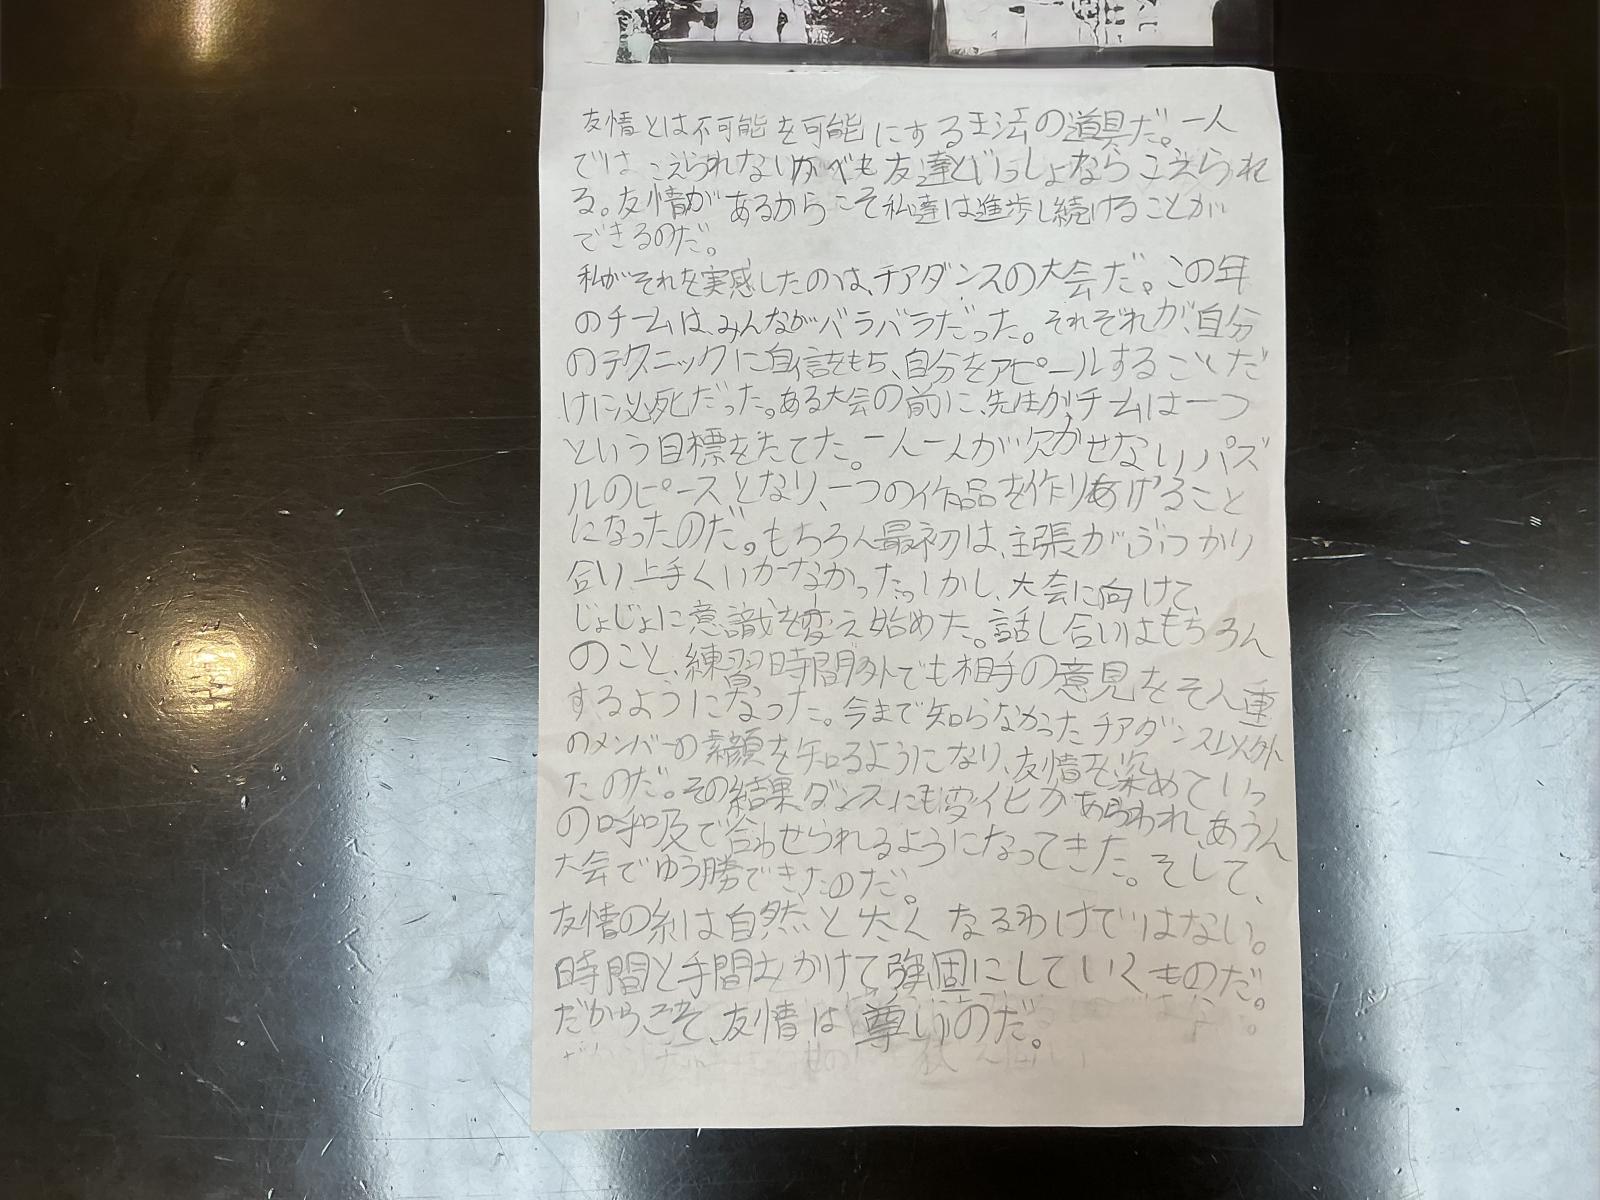 友情とは不可能を可能にする王法の道具だ。一人
ではこえられないかべも友達といっしょならこえられ
る。友情があるからこそ私達は進歩し続けることが
できるのだ。
私がそれを実感したのは、チアダンスの大会だ。この年
のチームは、みんながバラバラだった。それぞれが、自分
のテクニックに自信をもち、自分をアピールすることだ
けに必死だった。ある大会の前に、先生がチームは一つ
という目標をたてた。一人一人が欠かせないパズ
ルのピースとなり、一つの作品を作りあげること
になったのだ。もちろん最初は、主張がぶつかり
合い上手くいかなかった。しかし、大会に向けて、
じょじょに意識を変え始めた。話し合いはもちろん
のこと、練習時間外でも相手の意見をそん重
するようになった。今まで知らなかったチアダンス以外
のメンバーの素顔を知るようになり、友情を深めていっ
たのだ。その結果ダンスにも変化があらわれ、あうん
の呼吸で合わせられるようになってきた。そして、
大会でゆう勝できたのだ。
友情の糸は自然と太くなるわけではない。
時間と手間をかけて強固にしていくものだ。
だからこそ、友情は尊いのだ。